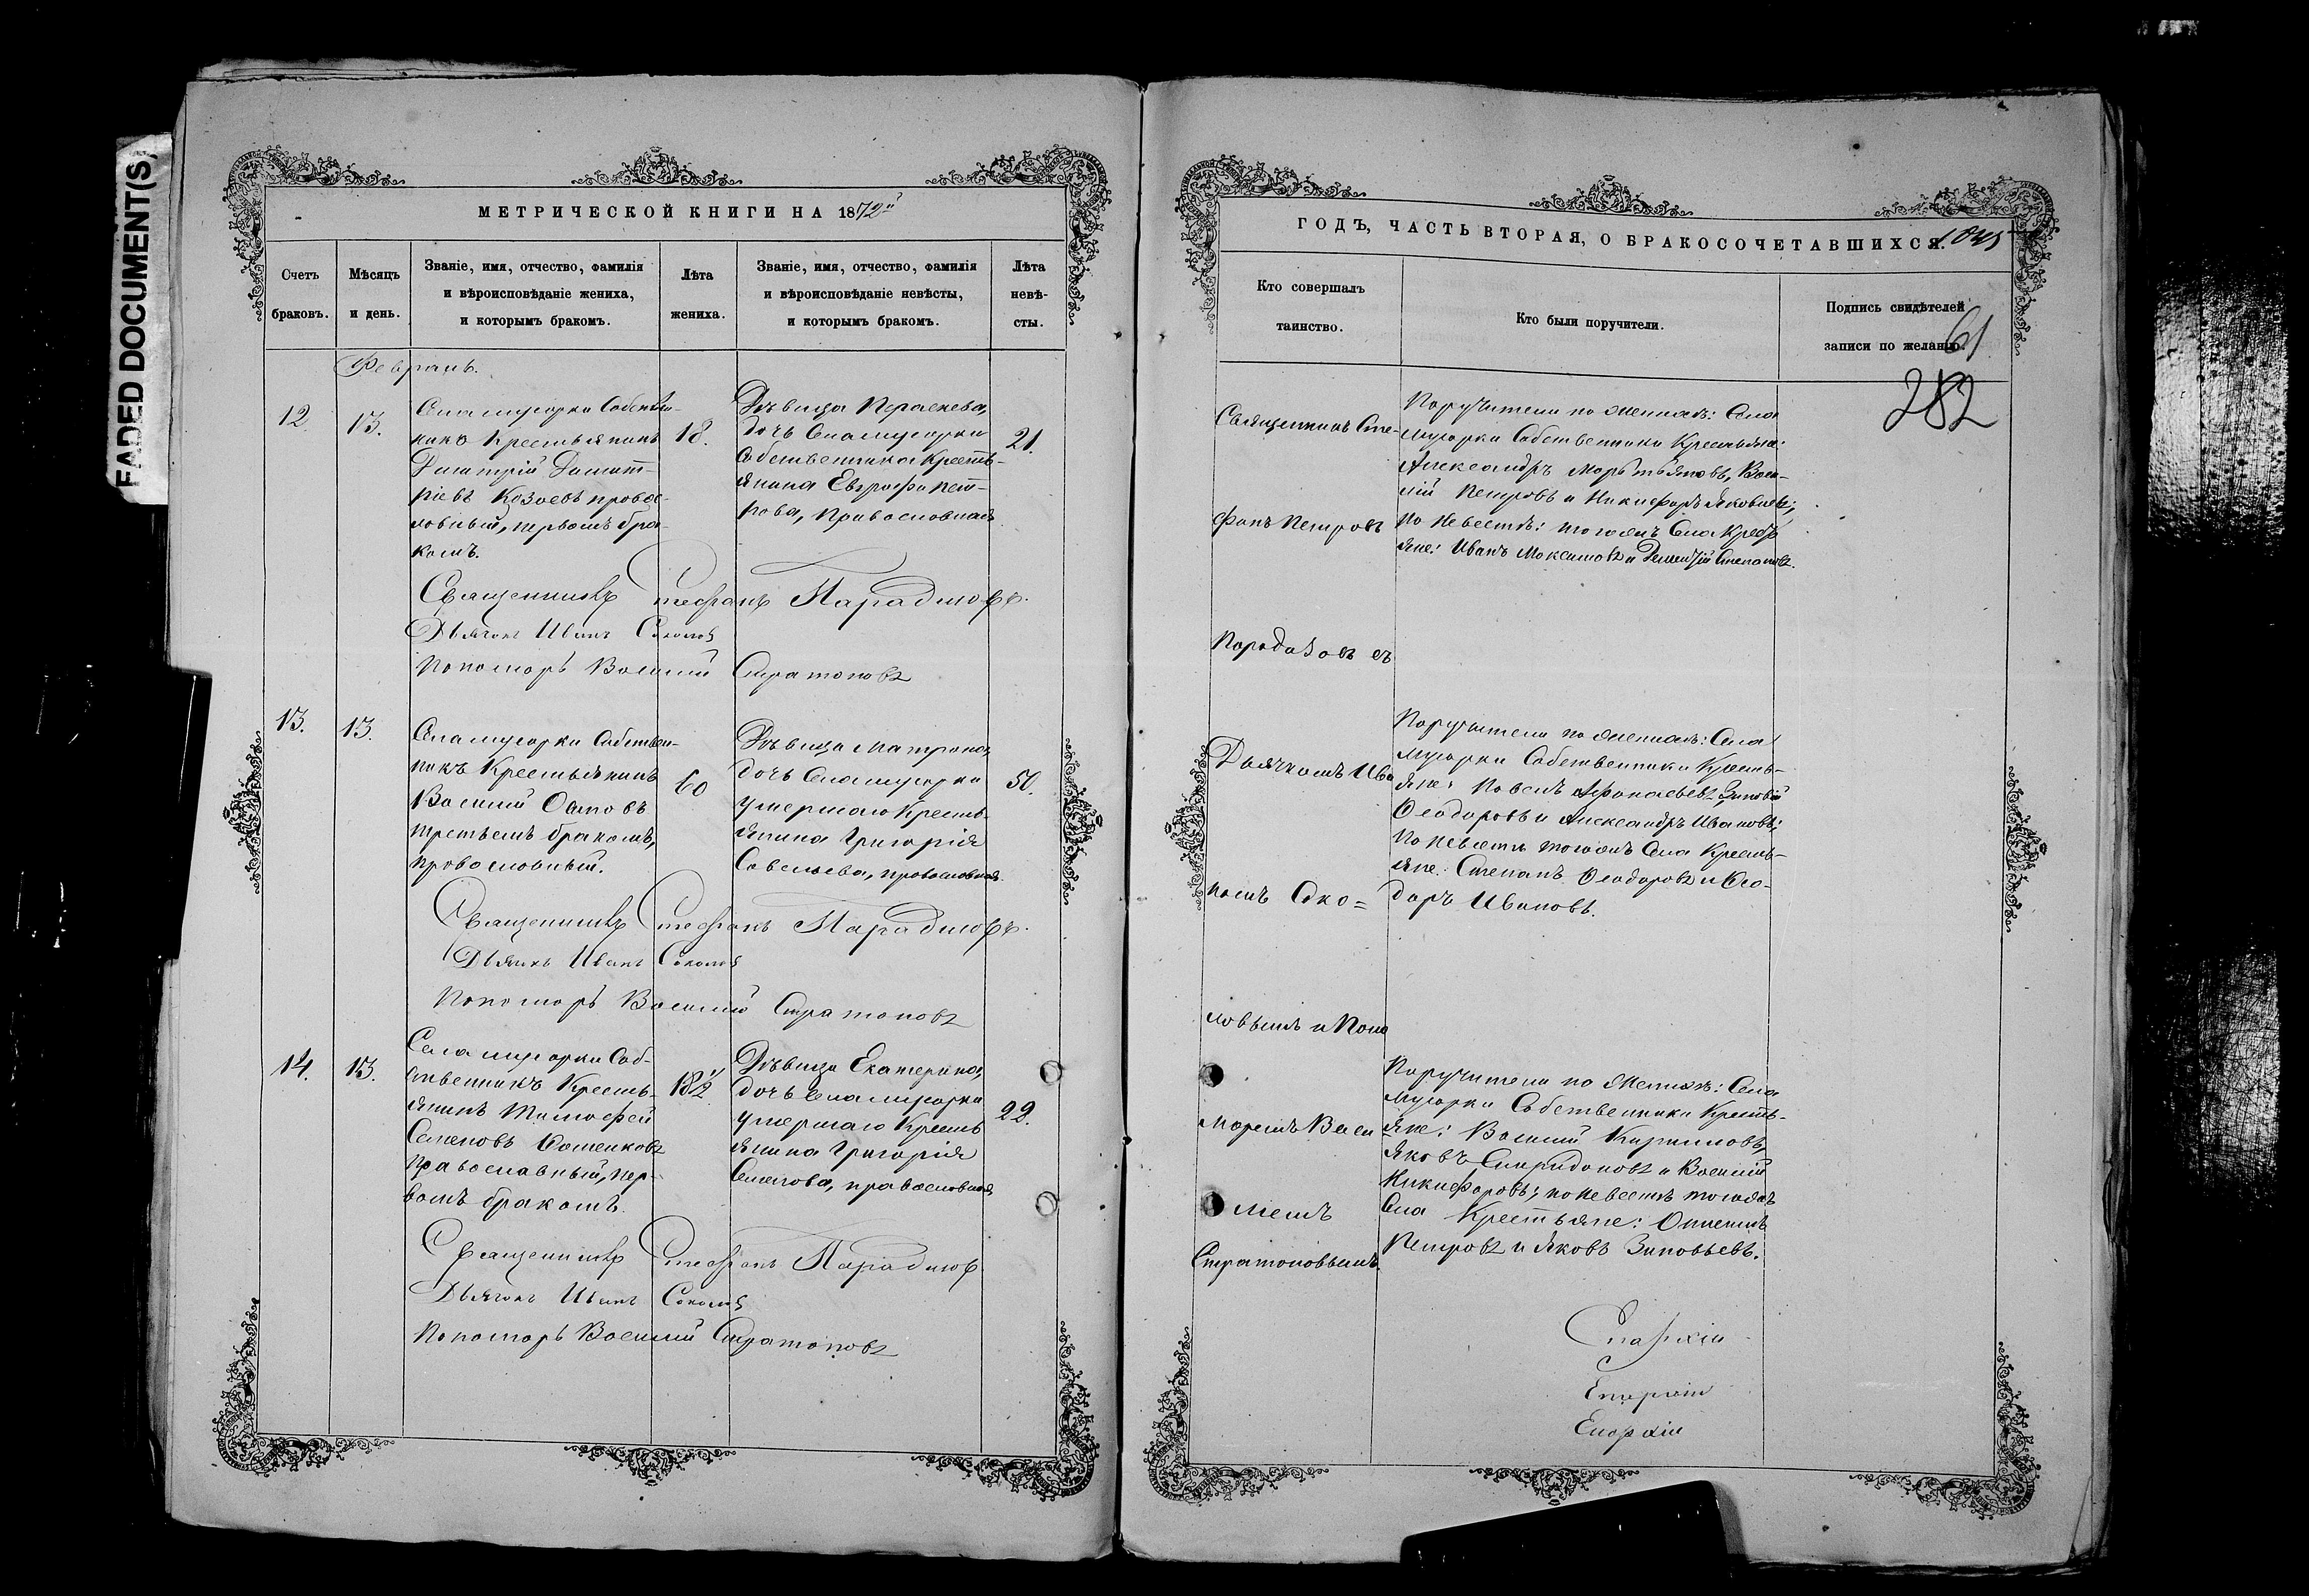 FADED DOCUMENT(S)
МЕТРИЧЕСКОЙ КНИГИ НА 1872й
Счетъ браковъ.
Мѣсяцъ и день.
Званіе, имя, отчество, фамилія
и вѣроисповѣданіе жениха,
и которымъ бракомъ.
Лѣта жениха.
Званіе, имя, отчество, фамилія
и вѣроисповѣданіе невѣсты,
и которымъ бракомъ.
Лѣта невѣ-
сты.
Февраль.
12.
13.
Села Собствен-
никъ Крестьянинъ
Димитрій Димит-
ріевъ Козаевъ правос-
лавный, первымъ бра-
комъ.
18.
Дѣвица
дочь Села
Собственника Кресть-
янина Евграфа Пет-
рова, Православная
21.
Священникъ Стефанъ Парадизовъ.
Дьячокъ Иванъ Соколовъ
Пономарь Василий Стратоновъ
13.
13.
Села Собствен-
никъ Крестьянинъ
Василий Осиповъ
третьемъ бракомъ,
православный.
60
Дѣвица Матрона,
дочь Села
умершаго Кресть-
янина Григорія
Савельева, православная.
50.
Священникъ Стефанъ Парадизовъ.
Дьячокъ Иванъ Соколовъ
Пономарь Василий Стратоновъ
14.
13.
Села Соб-
ственникъ Кресть-
янинъ Тимофей
Семеновъ
православный, пер-
вымъ бракомъ.
18½
Дѣвица Екатерина,
дочь Села
умершаго Кресть-
янина Григорія
Семенова, православная
22.
Священникъ Стефанъ Парадизовъ
Дьячокъ Иванъ Соколовъ
Пономарь Василий Стратоновъ
ГОДЪ, ЧАСТЬ ВТОРАЯ, О БРАКОСОЧЕТАВШИХСЯ.
Кто совершалъ
таинство.
Кто были поручители.
Подпись свидѣтелей
записи по желанію.
61
282
Священникъ Сте-
фанъ Петровъ
Парадизовъ съ
Дьячкомъ Ива
номъ Соко=
ловымъ и Поно
маремъ Васи
лиемъ
Стратоновымъ.
Поручители по женихѣ: Села
Собственники Крестьяне:
Александръ Васи-
лій Петровъ и Никифоръ Яковлевъ;
по Невестѣ: тогожъ Села Кресть
яне: Иванъ Максимовъ и Дементій Степановъ.
Поручители по женихѣ: Села
Собственники Кресть-
яне: Павелъ Афанасьевъ Зиновій
Феодоровъ и Александръ Ивановъ;
по невестѣ тогожъ Села Кресть-
яне: Степанъ Феодоровъ и Фео-
доръ Ивановъ.
Поручители по женихѣ: Села
Собственники Кресть-
яне: Василий Кириловъ,
Яковъ Спиридоновъ и Василий
Никифоровъ; по невестѣ тогожъ
Села Крестьяне:
Петровъ и Яковъ Зиновьевъ.
Епархіи
Епархіи
Епархіи